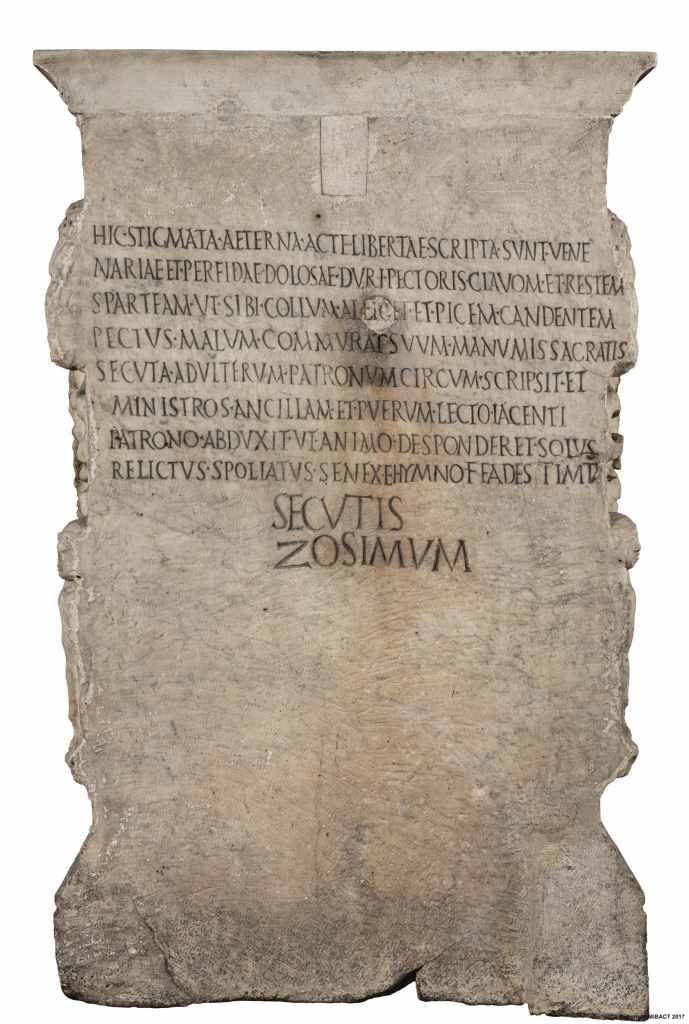 HIC·STIGMATA·AETERNA·ACTE·LIBERTAE·SCRIPTA·SVNT·VENE
NARIAE·ET·PERFIDAE·DOLOSAE·DVRI·PECTORIS·CLAVOM·ET·RESTEM
SPARTEAM·VT·SIBI·COLLVM·ALLIGET·ET·PICEM·CANDENTEM
PECTVS·MALVM·COMMVRAT·SVVM·MANVMISSA·GRATIS
SECVTA·ADVLTERVM·PATRONVM·CIRCVMSCRIPSIT·ET
MINISTROS·ANCILLAM·ET·PVERVM·LECTO·IACENTI
PATRONO·ABDVXIT·VT·ANIMO·DESPONDERET·SOLVS
RELICTVS·SPOLIATVS·SENEX·E·HYMNO
SECVTIS
ZOSIMVM
MIBACT 2017